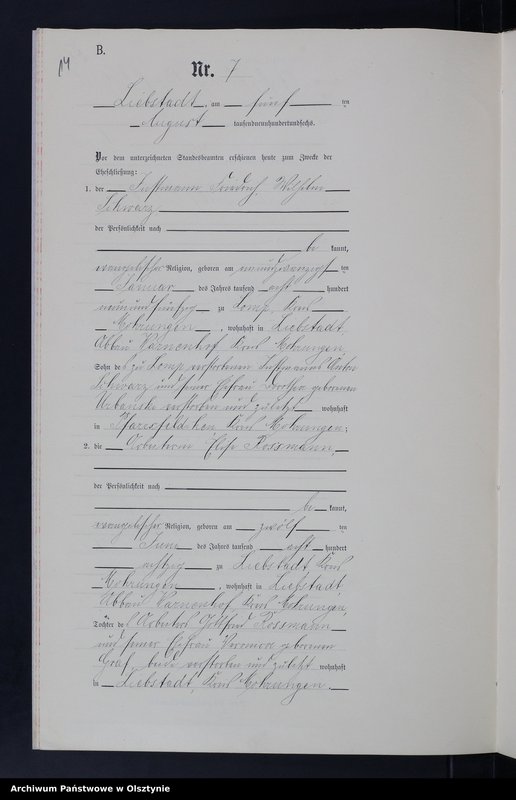 14
B.
Nr. 7
Liebstadt, am fünf ten
August tausendneunhundertundsechs.
Vor dem unterzeichneten Standesbeamten erschienen heute zum Zwecke der
Eheschließung:
1. der Instmann Friedrich Wilhelm
Schwarz
der Persönlichkeit nach
be kannt,
evangelischer Religion, geboren am neunundzwanzigs ten
Januar des Jahres tausend acht hundert
neunundfünfzig zu Komp, Kreis
Mohrungen, wohnhaft in Liebstadt
Abbau Karnenhof Kreis Mohrungen,
Sohn des zu verstorbenen Instmanns
Schwarz und seiner Ehefrau Dorothea geborenen
Urbanski verstorben und zuletzt wohnhaft
in Pfarrsfeldchen Kreis Mohrungen;
2. die Arbeiterin Elise Rossmann,
der Persönlichkeit nach
be kannt,
evangelischer Religion, geboren am zwölf ten
Juni des Jahres tausend acht hundert
zu Liebstadt, Kreis
Mohrungen, wohnhaft in Liebstadt
Abbau Karnenhof Kreis Mohrungen,
Tochter des Arbeiters Gottfried Rossmann
und seiner Ehefrau geborenen
Graf, beide verstorben und zuletzt wohnhaft
in Liebstadt, Kreis Mohrungen.
Archiwum Państwowe w Olsztynie